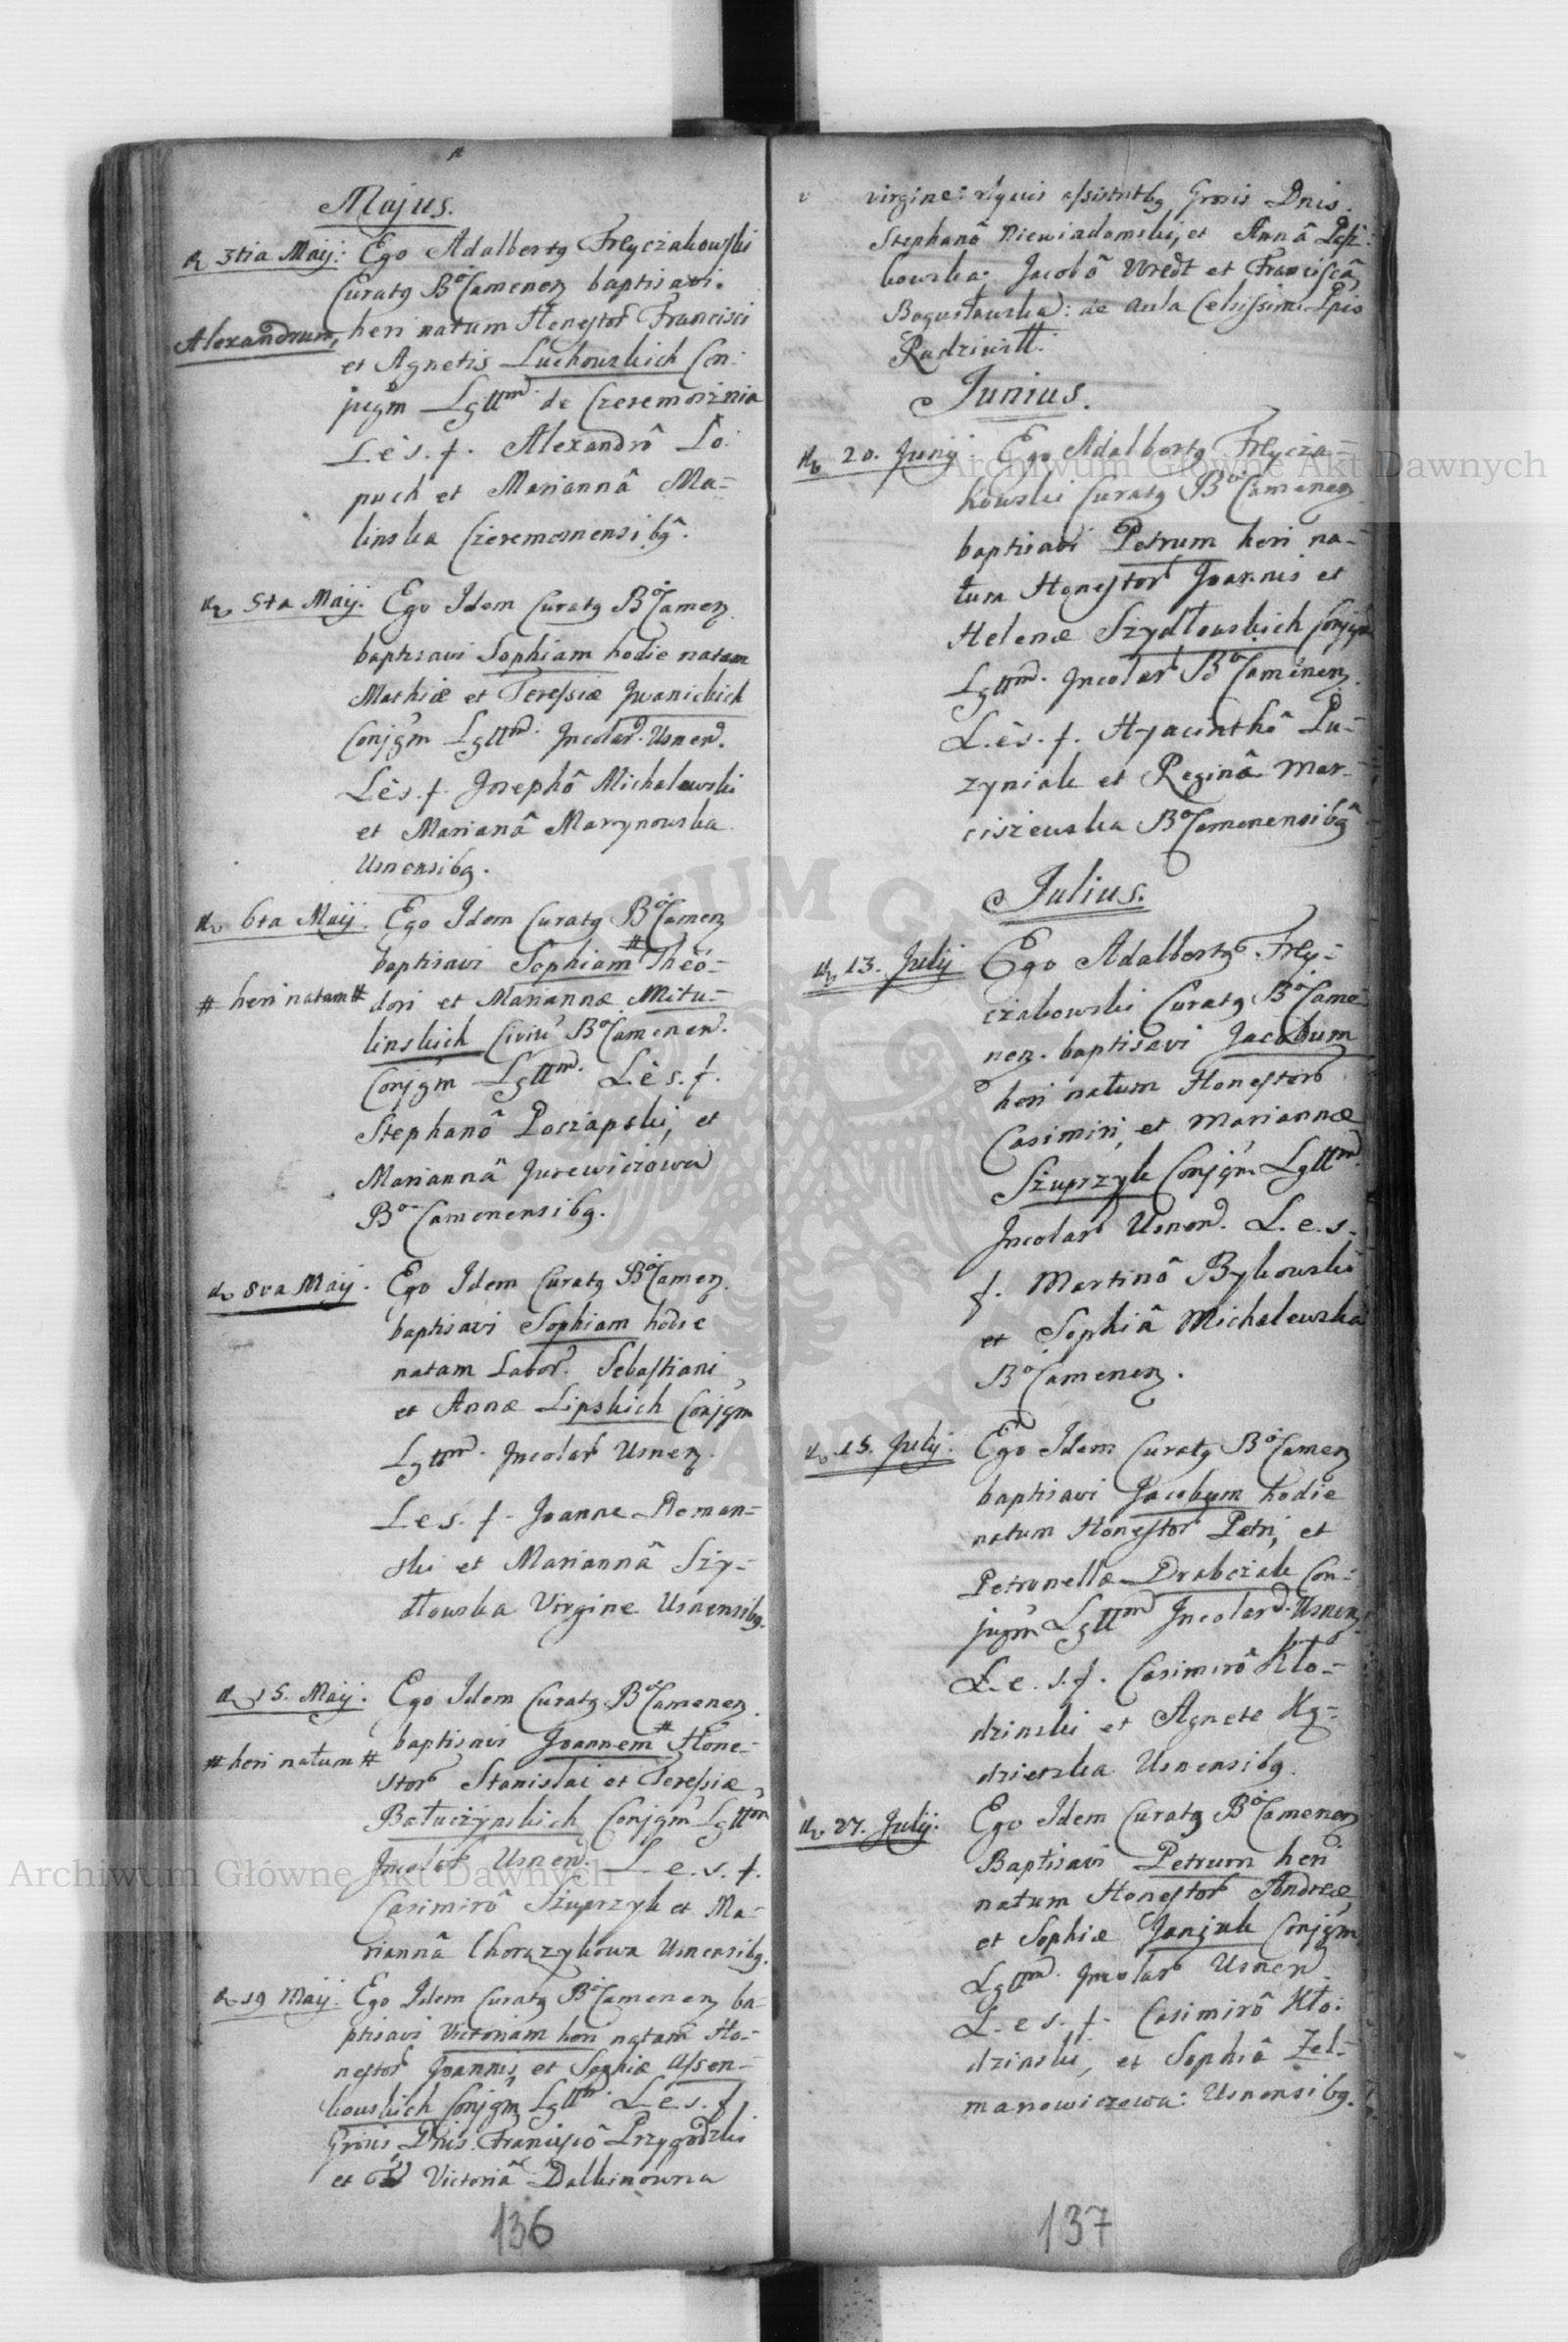 Majus.
d. 3tia Maij: Ego Adalbertg Freyczakowski
Curatg BoCamenen baptisavi
Alexandrum, heri natum Honestor Francisci
et Agnetis Luchowskich Con:
jugm Lgttmd de Czeremosznia
L è s. f. Alexandrô Lo:
puch et Mariannâ Ma=
linska Czeremosnensibg.
d. 5ta Maij. Ego Idem Curatg BoCamen
baptisavi Sophiam hodie natam
Mathiæ et Teressiæ Iwanickich
Conjgm Lgttmd. Incolar. Usnen.
L è s. f. Josephô Michalewski
et Marianâ Martynowska
Usnensibg.
d. 6ta Maij. Ego Idem Curatg BoCamen
baptisavi Sophiam # Theo=
# heri natam # dori et Mariannæ Mitu=
linskich Civiu BoCamenen.
Conjgm Lgttmd. L è s. f.
Stephanô Poczapski, et
Mariannâ Jurewiczowa
Bo Camenensibg.
d. 8va Maij. Ego Idem Curatg BoCamen.
baptisavi Sophiam hodie
natam Labor. Sebastiani
et Annæ Lipskich Conjgm
Lgttmd. Incolar Usnen.
L e s. f. Joanne Roman=
ski et Mariannâ Szy=
dłowska Virgine Usnensibg.
d. 15. Maij. Ego Idem Curatg BoCamenen.
baptisavi Joannem # Hone=
# heri natum # stor Stanislai et Teressiæ
Batuczynskich Conjgm Lgttm
Incolar Usnen. L e. s. f.
Casimirô Szuprzyk et Ma=
riannâ Chorązykowa Usnensibg.
d. 19 Maij. Ego Idem Curatg BoCamenen ba=
ptisavi Victoriam heri natam Ho=
nestor Joannis, et Sophiæ Assen=
kowskich Conjgm Lgttm. L e. s. f.
Grosis Dnis. Franciscô Przygodzki
et Victoriâ Dalkinowna
136
virgine: rlquis assistntbg Grosis Dnis.
Stephanô Niewiadomski, et Annâ
kowska: Jacobô Wredt et Franciscâ
Bogusławska: de aula Celsissimi Ppis
Radziwiłł.
Junius.
d. 20. Junij. Ego Adalbertg Freycza=
kowski Curatg BoCamenen
baptisavi Petrum heri na=
tum Honestor Joannis et
Helenæ Szydłowskich Conjgm
Lgttmd. Incolar BoCamenen.
L. è s. f. Hyacinthô Pu=
zyniak et Reginâ Mar=
ciszewska BoCamenensibg
Julius.
d. 13. Julij Ego Adalbertg Frey=
czakowski Curatg BoCame
nen. baptisavi Jacobum
heri natum Honestor
Casimiri, et Mariannæ
Szuprzyk Conjgm Lgttmd.
Incolar Usnen. L. e. s.
f. Martinô Bykowski
et Sophiâ Michalewska
BoCamenen.
d. 15. Julij. Ego Idem Curatg BoCamen
baptisavi Jacobum hodie
natum Honestor Petri, et
Petronellæ Drabczak Con=
jugm Lgttmd Incolar. Usnen
L. e. s. f. Casimirô Kło=
dzinski et Agnete Kę=
dzierska Usnensibg.
d. 27. Julij. Ego Idem Curatg BoCamenen
Baptisavi Petrum heri
natum Honestor Andreæ
et Sophiæ Janjuk Conjgm
Lgttmd. Incolar Usnen.
L. e s. f. Casimirô Kło:
dzinski, et Sophiâ Zel=
manowiczowa: Usnensibg.
137
Archiwum Główne Akt Dawnych
Archiwum Główne Akt Dawnych